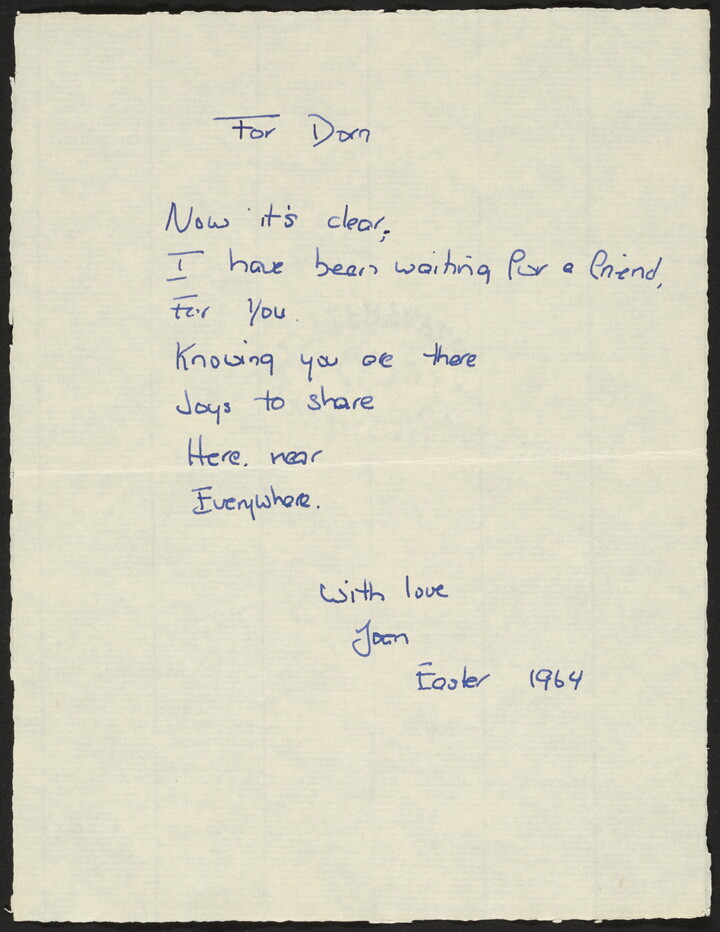 For Dom
Now it's clear,
I have been waiting for a friend,
For You.
Knowing you are there
Joys to share
Here. near
Everywhere.
With love
Joan
Easter 1964